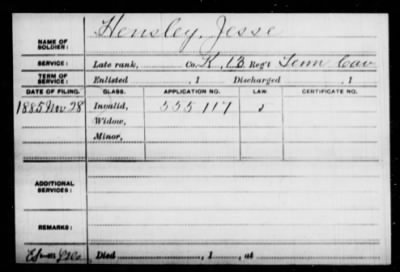 NAME OF SOLDIER: Hensley, Jesse
SERVICE: Late rank, Co. K, 13 Reg't Tenn Cav
TERM OF SERVICE: Enlisted , 1 Discharged , 1
DATE OF FILING. CLASS. APPLICATION NO. LAW. CERTIFICATE NO.
1885 Nov 28 Invalid, 555117
Widow,
Minor,
ADDITIONAL SERVICES:
REMARKS:
Died , 1 , at